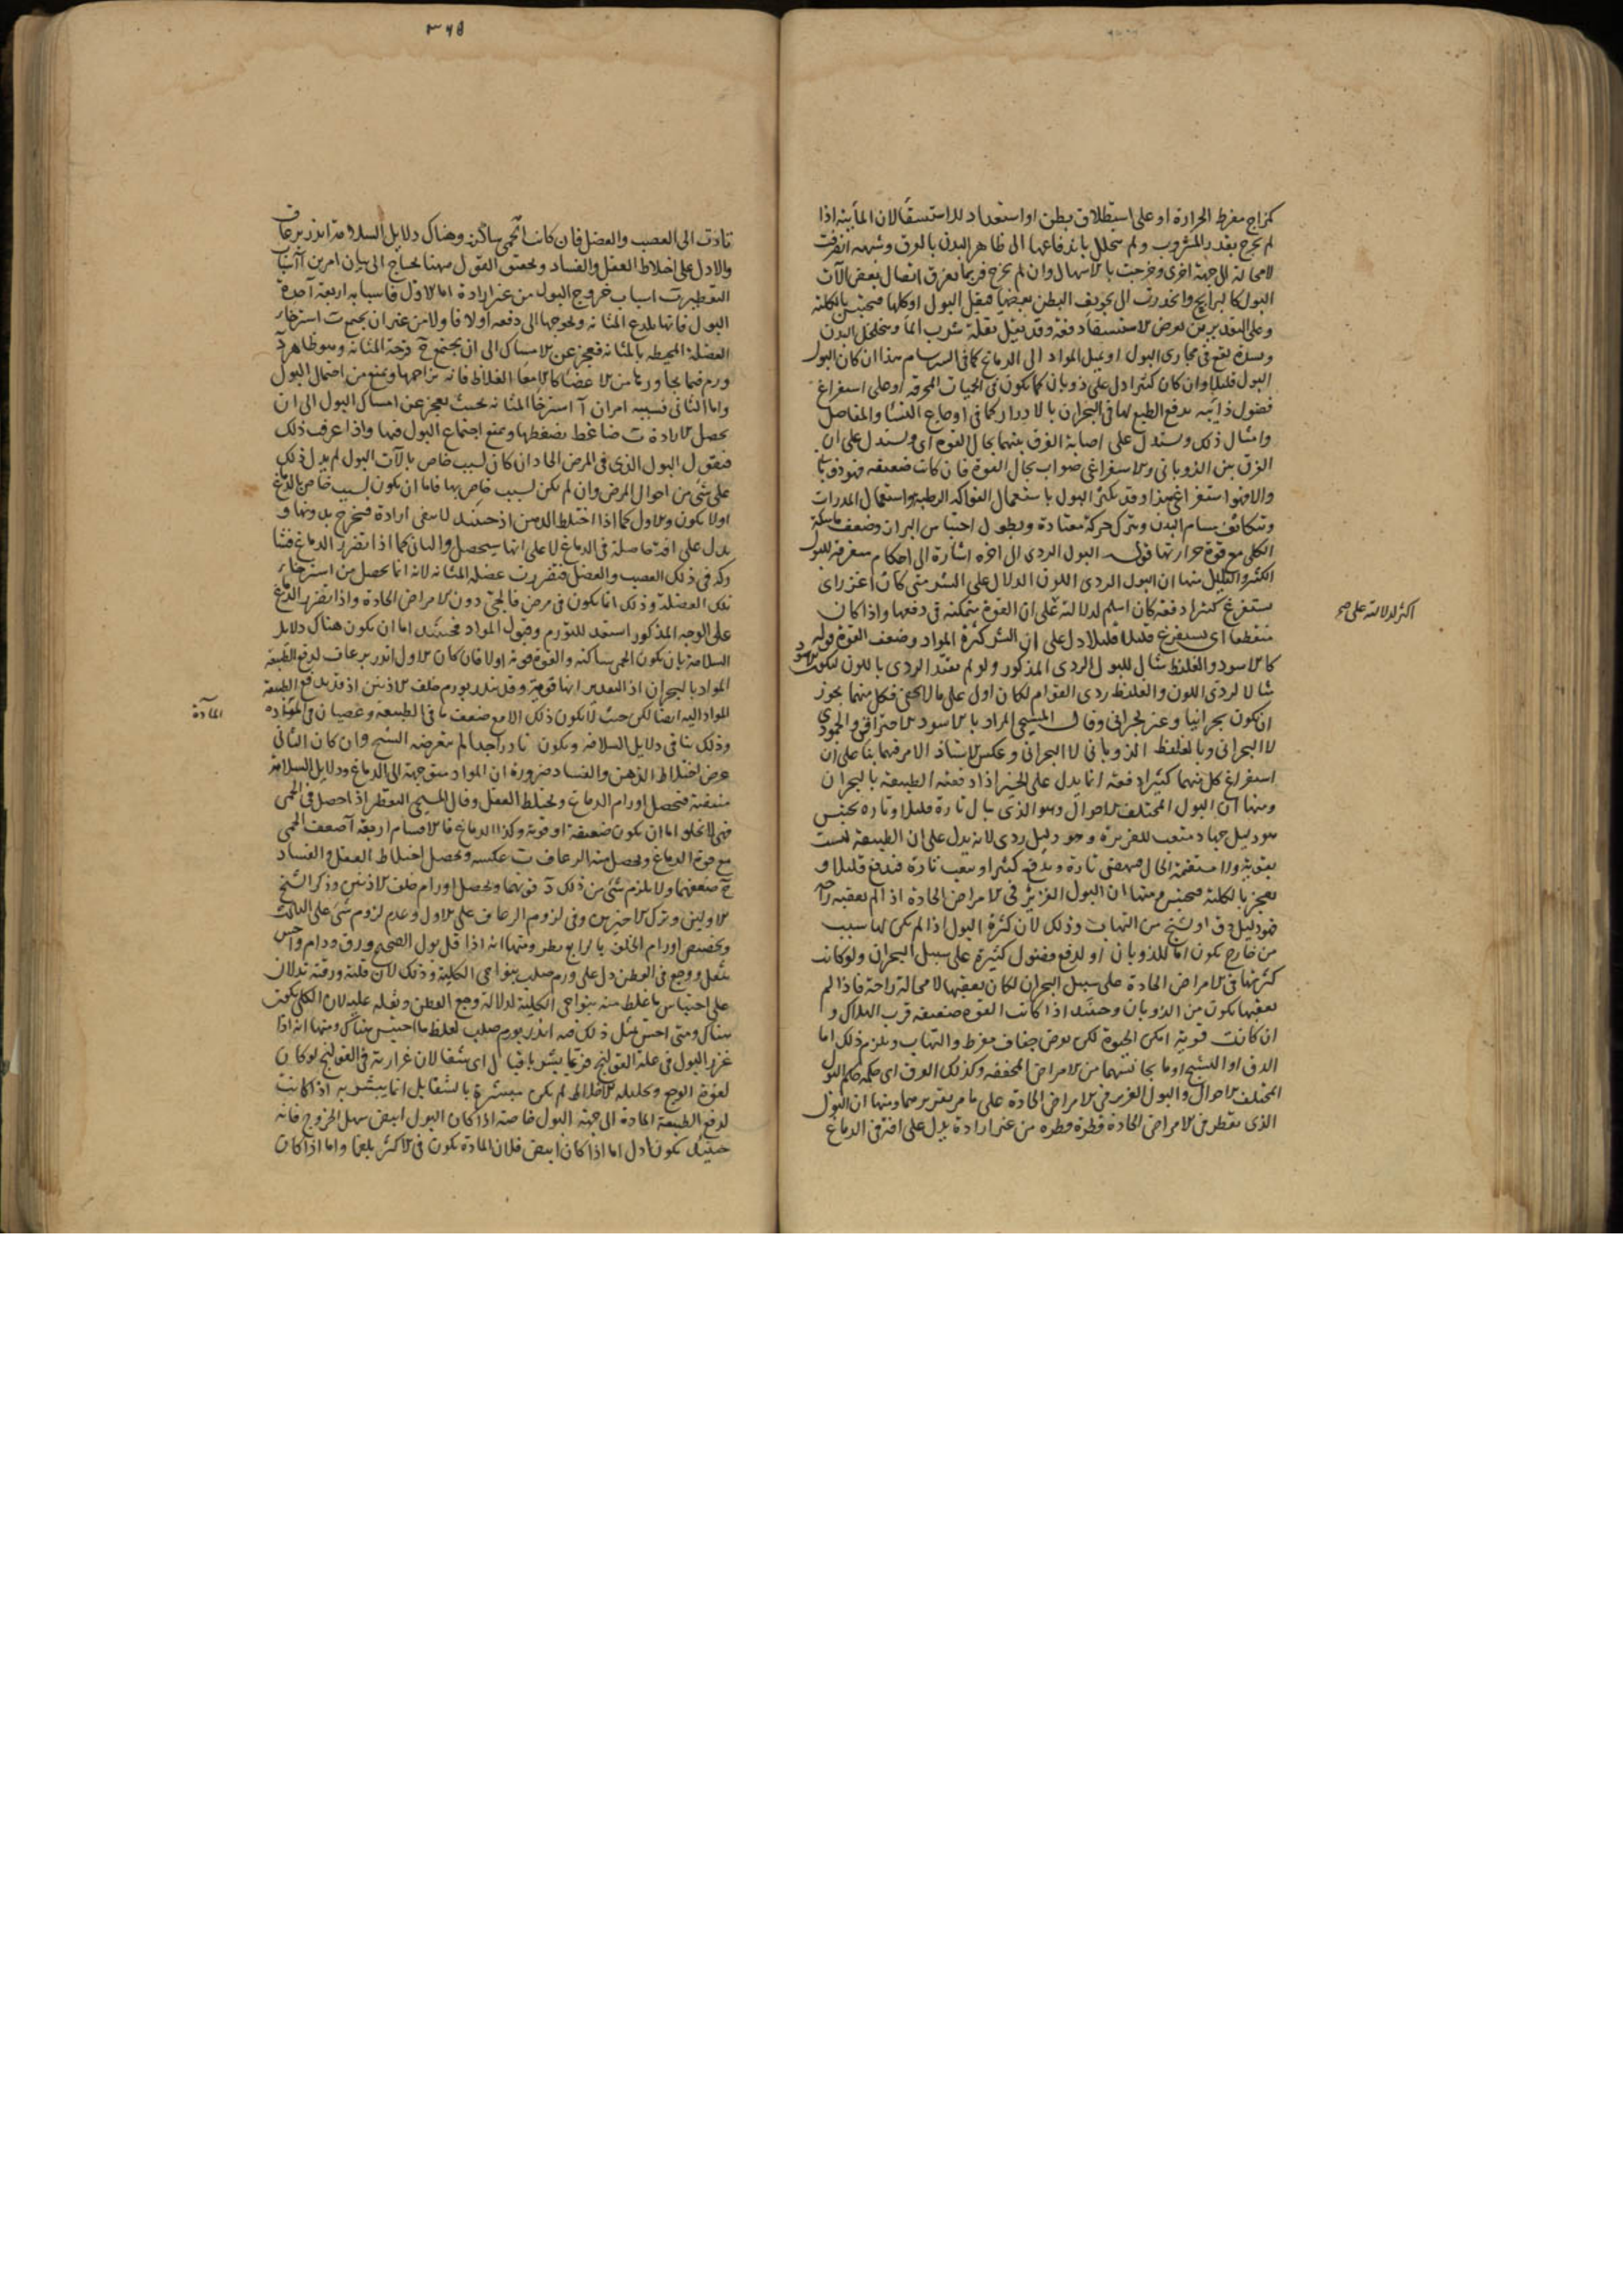 كمزاج مفرط الحرارة او على استطلاق بطن او استعداد للاستسقا لان المائية اذا
لم تخرج بقدر المشروب ولم تتحلل باندفاعها الى ظاهر البدن بالعرق وشبهه انصرفت
لا محالة الى جهة اخرى وخرجت بالاسهال وان لم تخرج فربما تفرق اتصال بعض آلات
البول كالبرابخ وانحدرت الى تجويف البطن بعضها فيقل البول او كلها فيحتبس بالكلية
وعلى التقديرين يعرض الاستسقا دفعة وقد يقل بقلة شرب الما وتخلخل البدن
وسدة تقع فى مجارى البول او تميل المواد الى الدماغ كما فى السرسام هذا ان كان البول
البول قليلا وان كان كثيرا دل على ذوبان كما يكون فى الحميات المحرقة او على استفراغ
فضول ذائبة يدفع الطبع لها فى البحران بالادرار كما فى اوجاع النسا والمفاصل
وامثال ذلك ويستدل على اصابة الفرق بينهما بحال القوة اى ويستدل على ان
الفرق بين الذوبانى والاستفراغى صواب بحال القوة فان كانت ضعيفة فهو ذوبا
والا فهو استفراغى هذا وقد يكثر البول باستعمال الفواكه الرطبة واستعمال المدرات
وتكاثف مسام البدن وترك حركة معتادة وبطول احتباس البراز وضعف ماسكة
الكلى مع قوة حرارتها قوله البول الردى الى اخره اشارة الى احكام متفرقة للبول
الكثير والقليل منها ان البول الردى اللون الدال على الشر متى كان اغزر اى
يستفرغ كثيرا دفعة كان اسلم لدلالته على ان القوة متمكنة فى دفعها واذا كان
اكثر لدلالته على صح
متقطعا اى يستفرغ قليلا قليلا دل على ان الشر كثرة المواد وضعف القوة قوله
كالاسود والغليظ مثال للبول الردى المذكور ولو لم يقيد الردى باللون ليكون الاسود
مثالا لردى اللون والغليظ ردى القوام لكان اولى على ما لا يخفى فكل منهما يجوز
ان يكون بحرانيا وغير بحرانى وقال المسيحى المراد بالاسود الاحتراقى والجمودى
لا البحرانى وبالغليظ الذوبانى لا البحرانى وعكس الاستاذ الامر فيهما بنا على ان
استفراغ كل منهما كثيرا دفعة انما يدل على الخير اذا دفعته الطبيعة بالبحران
ومنها ان البول المختلف الاحوال وهو الذى يبال تارة قليلا وتارة يحتبس
هو دليل جهاد متعب للغريزة وهو دليل ردى لانه يدل على ان الطبيعة ليست
بقوية ولا مستقيمة الحال فتنهض تارة وتدفع كثيرا وتتعب تارة فتدفع قليلا و
تعجز بالكلية فيحتبس ومنها ان البول الغزير فى الامراض الحادة اذا لم يعقبه راحة
فهو دليل دق او تشنج من التهاب وذلك لان كثرة البول اذا لم يكن لها سبب
من خارج يكون اما للذوبان او لدفع فضول كثيرة على سبيل البحران ولو كانت
كثرتها فى الامراض الحادة على سبيل البحران لكان تعقبها لا محالة راحة فاذا لم
تعقبها يكون من الذوبان وحينئذ اذا كانت القوة ضعيفة قرب الهلاك و
ان كانت قوية امكن الحيوة لكن يعرض جفاف مفرط والتهاب ويلزم ذلك اما
الدق او التشنج او ما يجانسهما من الامراض المجففة وكذلك العرق اى حكمه حكم البول
المختلف الاحوال والبول الغزير فى الامراض الحادة على ما مر تقريرهما ومنها ان البول
الذى يتقطر فى الامراض الحادة قطرة قطرة من غير ارادة يدل على افة فى الدماغ
٣٦٥
تادت الى العصب والعضل فان كانت الحمى ساكنة وهناك دلايل السلامة انذر برعاف
والا دل على اختلاط العقل والفساد وتحقيق القول ههنا يحتاج الى بيان امرين آ اسباب
التقطير ب اسباب خروج البول من غير ارادة اما الاول فاسبابه اربعة آ حدة
البول فانها تلدغ المثانة وتحوجها الى دفعه اولا فاولا من غير ان يجتمع ب استرخاء
العضلة المحيطة بالمثانة فتعجز عن الامساك الى ان يجتمع ج قرحة المثانة وهو ظاهر د
ورم فيما يجاورها من الاعضا كالامعا الغلاظ فانه يزاحمها ويمنع من احتمال البول
واما الثانى فسببه امران آ استرخا المثانة بحيث تعجز عن امساك البول الى ان
تحصل الارادة ب ضاغط يضغطها ويمنع اجتماع البول فيها واذا عرف ذلك
فنقول البول الذى فى المرض الحاد ان كان لسبب خاص بالآت البول لم يدل ذلك
على شئ من احوال المرض وان لم يكن لسبب خاص بها فاما ان يكون لسبب خاص بالدماغ
اولا يكون والاول كما اذا اختلط الذهن اذ حينئذ لا يبقى ارادة فيخرج بدونها و
يدل على افة حاصلة فى الدماغ لا على انها ستحصل والثانى كما اذا تضرر الدماغ فتشا
ركه فى ذلك العصب والعضل فتضررت عضلة المثانة لانه انما يحصل من استرخاء
تلك العضلة وذلك انما يكون فى مرض فالجى دون الامراض الحادة واذا تضرر الدماغ
على الوجه المذكور استعد للتورم وقبول المواد فحينئذ اما ان يكون هناك دلايل
السلامة بان يكون الحمى ساكنة والقوة قوية اولا فان كان الاول انذر برعاف لدفع الطبيعة
المواد بالبحران اذ التقدير انها قوية وقد ينذر بورم خلف الاذنين اذ قد يدفع الطبيعة
المادة
المواد اليه ايضا لكن حيث لا يكون ذلك الا مع ضعف ما فى الطبيعة وعصيان فى المواد
وذلك ينافى دلايل السلامة ويكون نادرا جدا لم يتعرضه الشيخ وان كان الثانى
عرض اختلاط الذهن والفساد ضرورة ان المواد متوجهة الى الدماغ ودلايل السلامة
منتفية فتحصل اورام الدماغ ويختلط العقل وقال المسيحى التقطير اذا حصل فى الحمى
فهى لا تخلو اما ان يكون ضعيفة او قوية وكذا الدماغ فالاقسام اربعة آ ضعف الحمى
مع قوة الدماغ ويحصل منه الرعاف ب عكسه ويحصل اختلاط العقل والفساد
ج ضعفهما ولا يلزم شئ من ذلك د قوتهما ويحصل اورام خلف الاذنين وذكر الشيخ
الاولين وترك الاخيرين وفى لزوم الرعاف على الاول وعدم لزوم شئ على الثالث
وتخصيص اورام الخلف بالرابع نظر ومنها انه اذا قل بول الصحيح ورق ودام واحس
بثقل ووجع فى القطن دل على ورم صلب بنواحى الكلية وذلك لان قلته ورقته تدلان
على احتباس ما غلظ منه بنواحى الكلية لدلالة وجع القطن وثقله عليه لان الكلى يكون
هناك ومتى احتبس مثل ذلك فيه انذر بورم صلب لغلظ ما احتبس هناك ومنها انه اذا
غزر البول فى علة القولنج فربما يبشر باقبال اى بشفا لان غزارته فى القولنج لو كان
لقوة الوجع وتحليله الاخلاط لم يكن مبشرة بالشفا بل انما يبشر به اذا كانت
لدفع الطبيعة المادة الى جهة البول خاصة اذا كان البول ابيض سهل الخروج فانه
حينئذ يكون ادل اما اذا كان ابيض فلان المادة يكون فى الاكثر بلغما واما اذا كان